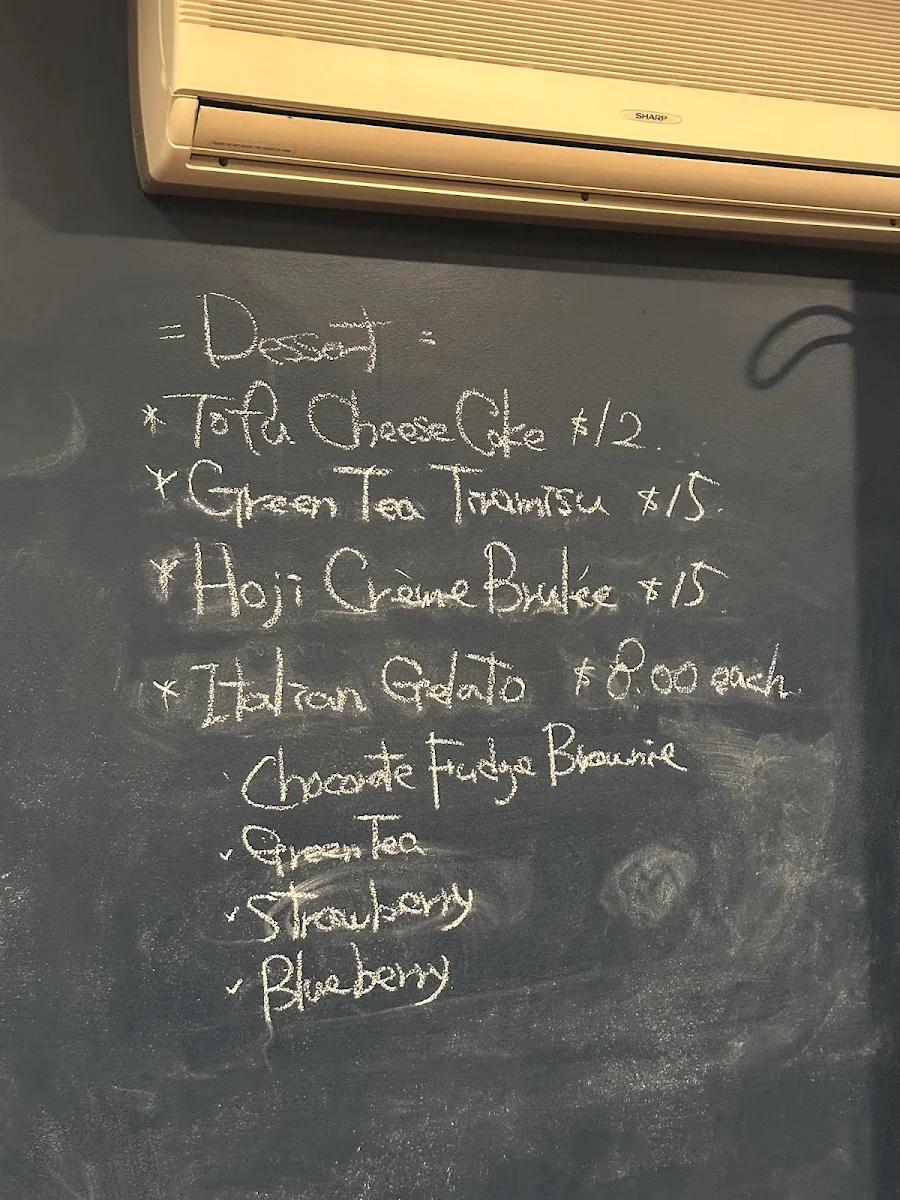 SHARP
= Dessert =
* Tofu Cheese Cake $12
* Green Tea Tiramisu $15.
* Hoji Crème Brulée $15
* Italian Gelato $8.00 each.
· Chocoate Fudge Brownie
✓ Green Tea
✓ Strawberry
✓ Blueberry